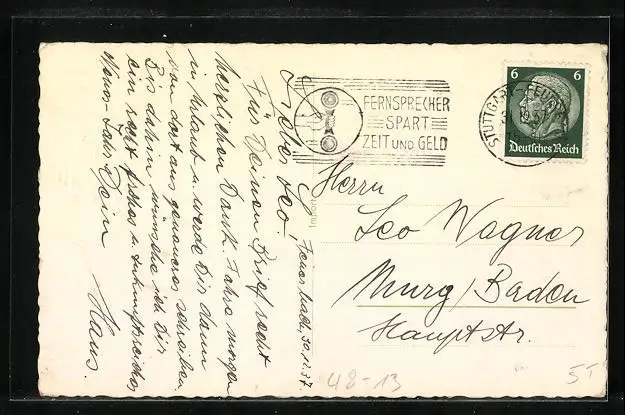 Feuerbach, 30.12.37.
Lieber Leo!
Für Deinen Brief recht
herzlichen Dank. Fahre morgen
in Urlaub u. werde Dir dann
von dort aus genaueres schreiben.
Bis dahin wünsche ich Dir
ein recht frohes u.
Neues Jahr Dein
Hans.
FERNSPRECHER
SPART
ZEIT UND GELD
STUTTGART-FEUERBACH
6 6
Deutsches Reich
Import
Herrn
Leo Wagner
Murg/Baden
Hauptstr.
48-13
5T